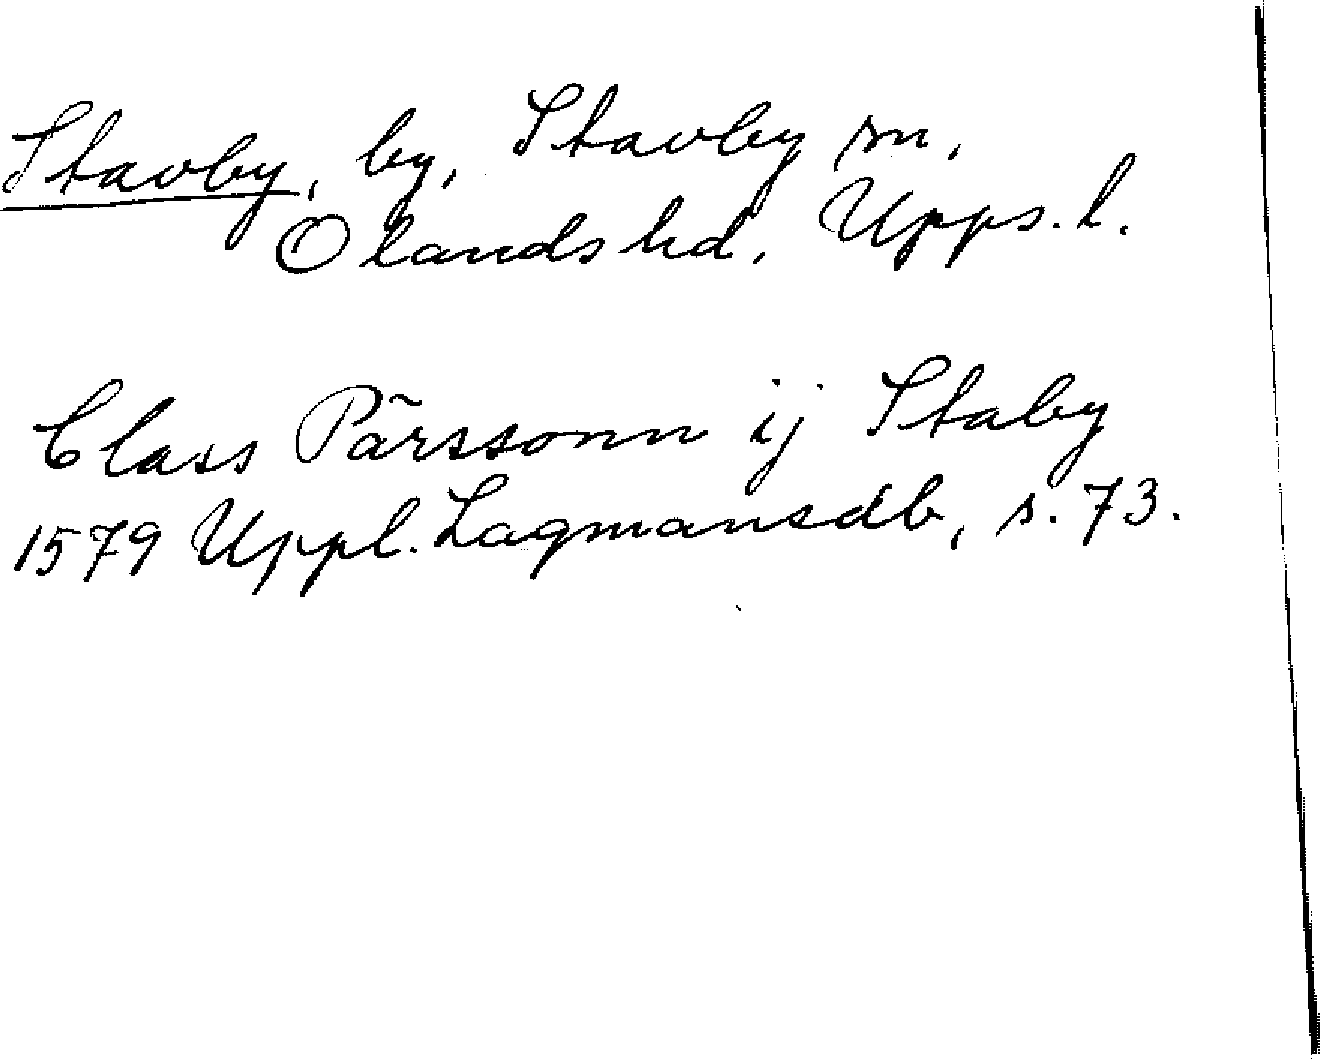 Stavby, by, Stavby sn,
Olands hd, Upps. l.
Class Pãrssonn ij Staby
1579 Uppl. Lagmansdb, s. 73.